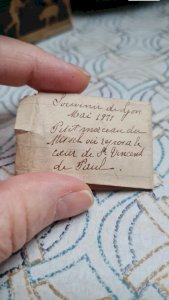 Souvenir de Lyon
Mai 1931
Petit morceau du
où reposa le
cœur de St Vincent
de Paul.